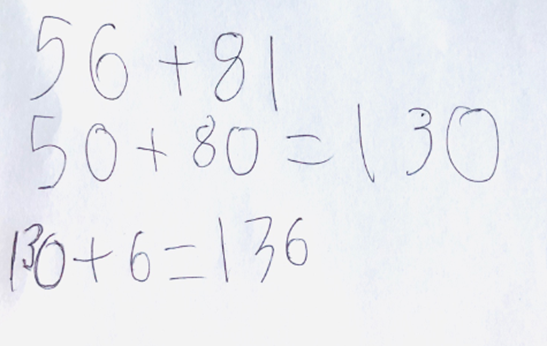 56 + 81
50 + 80 = 130
130 + 6 = 136